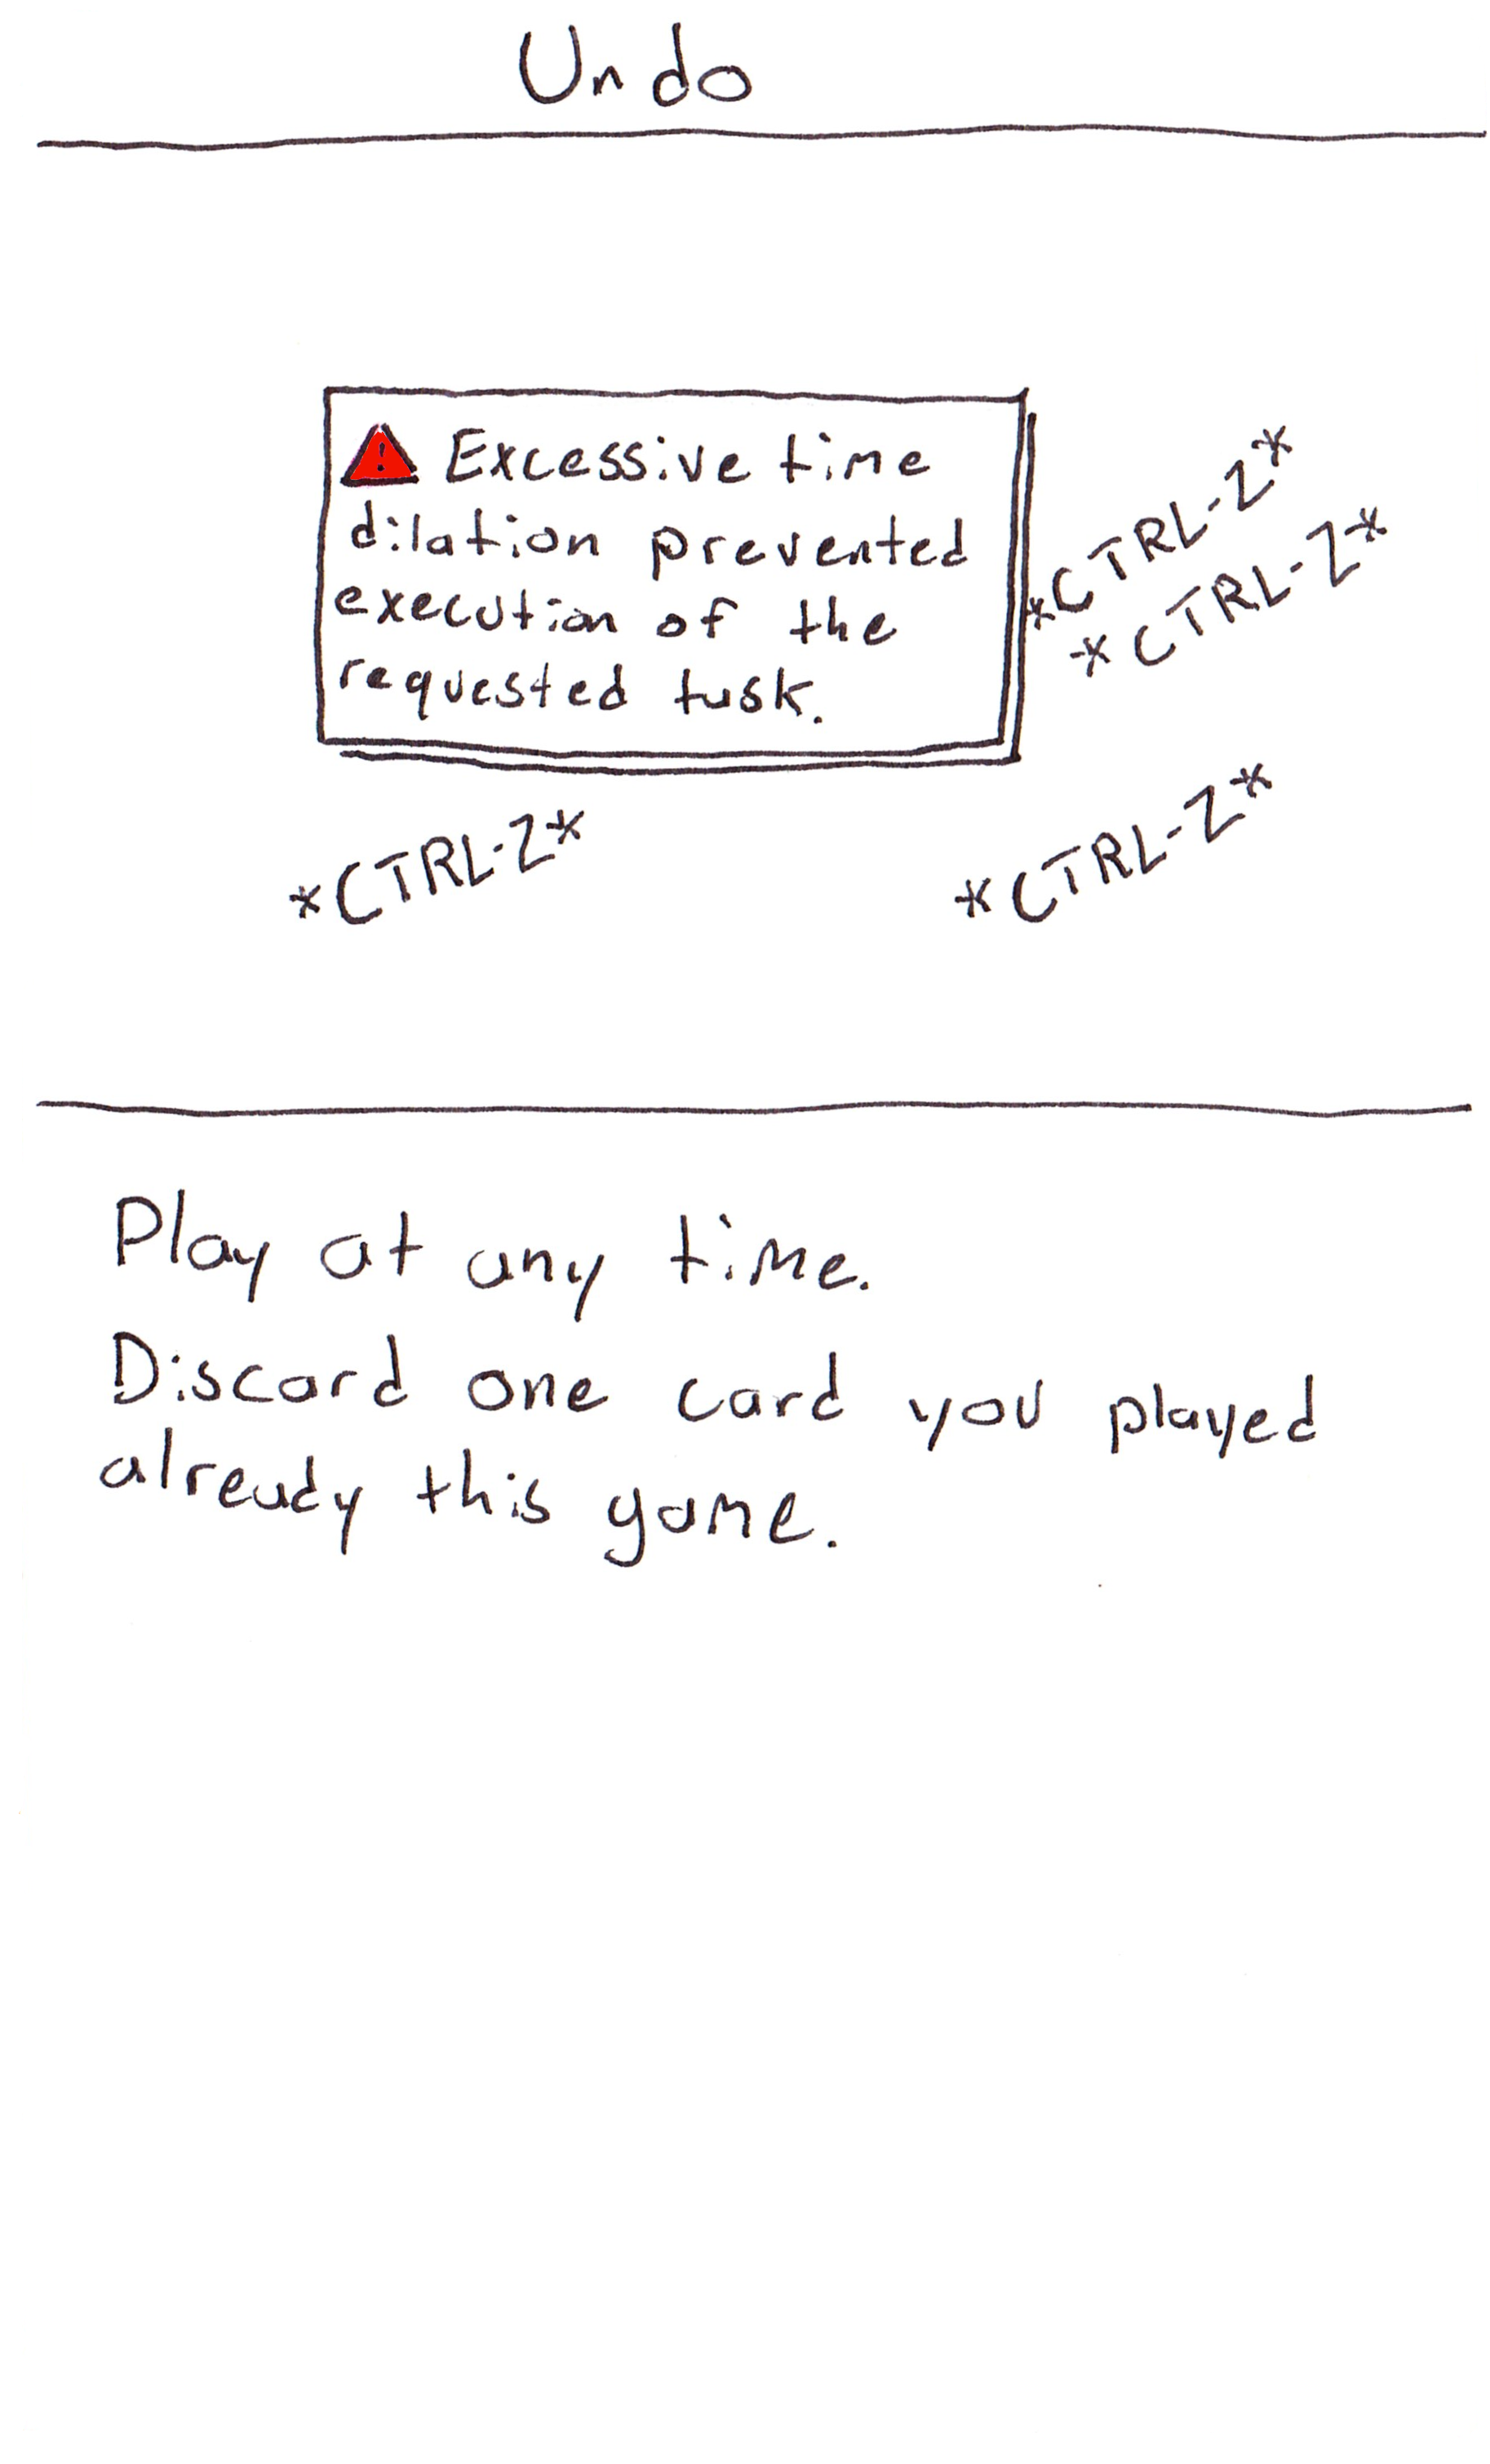 Undo
! Excessive time
dilation prevented
execution of the
requested task.
*CTRL-Z*
*CTRL-Z*
*CTRL-Z*
*CTRL-Z*
Play at any time.
Discard one card you played
already this game.